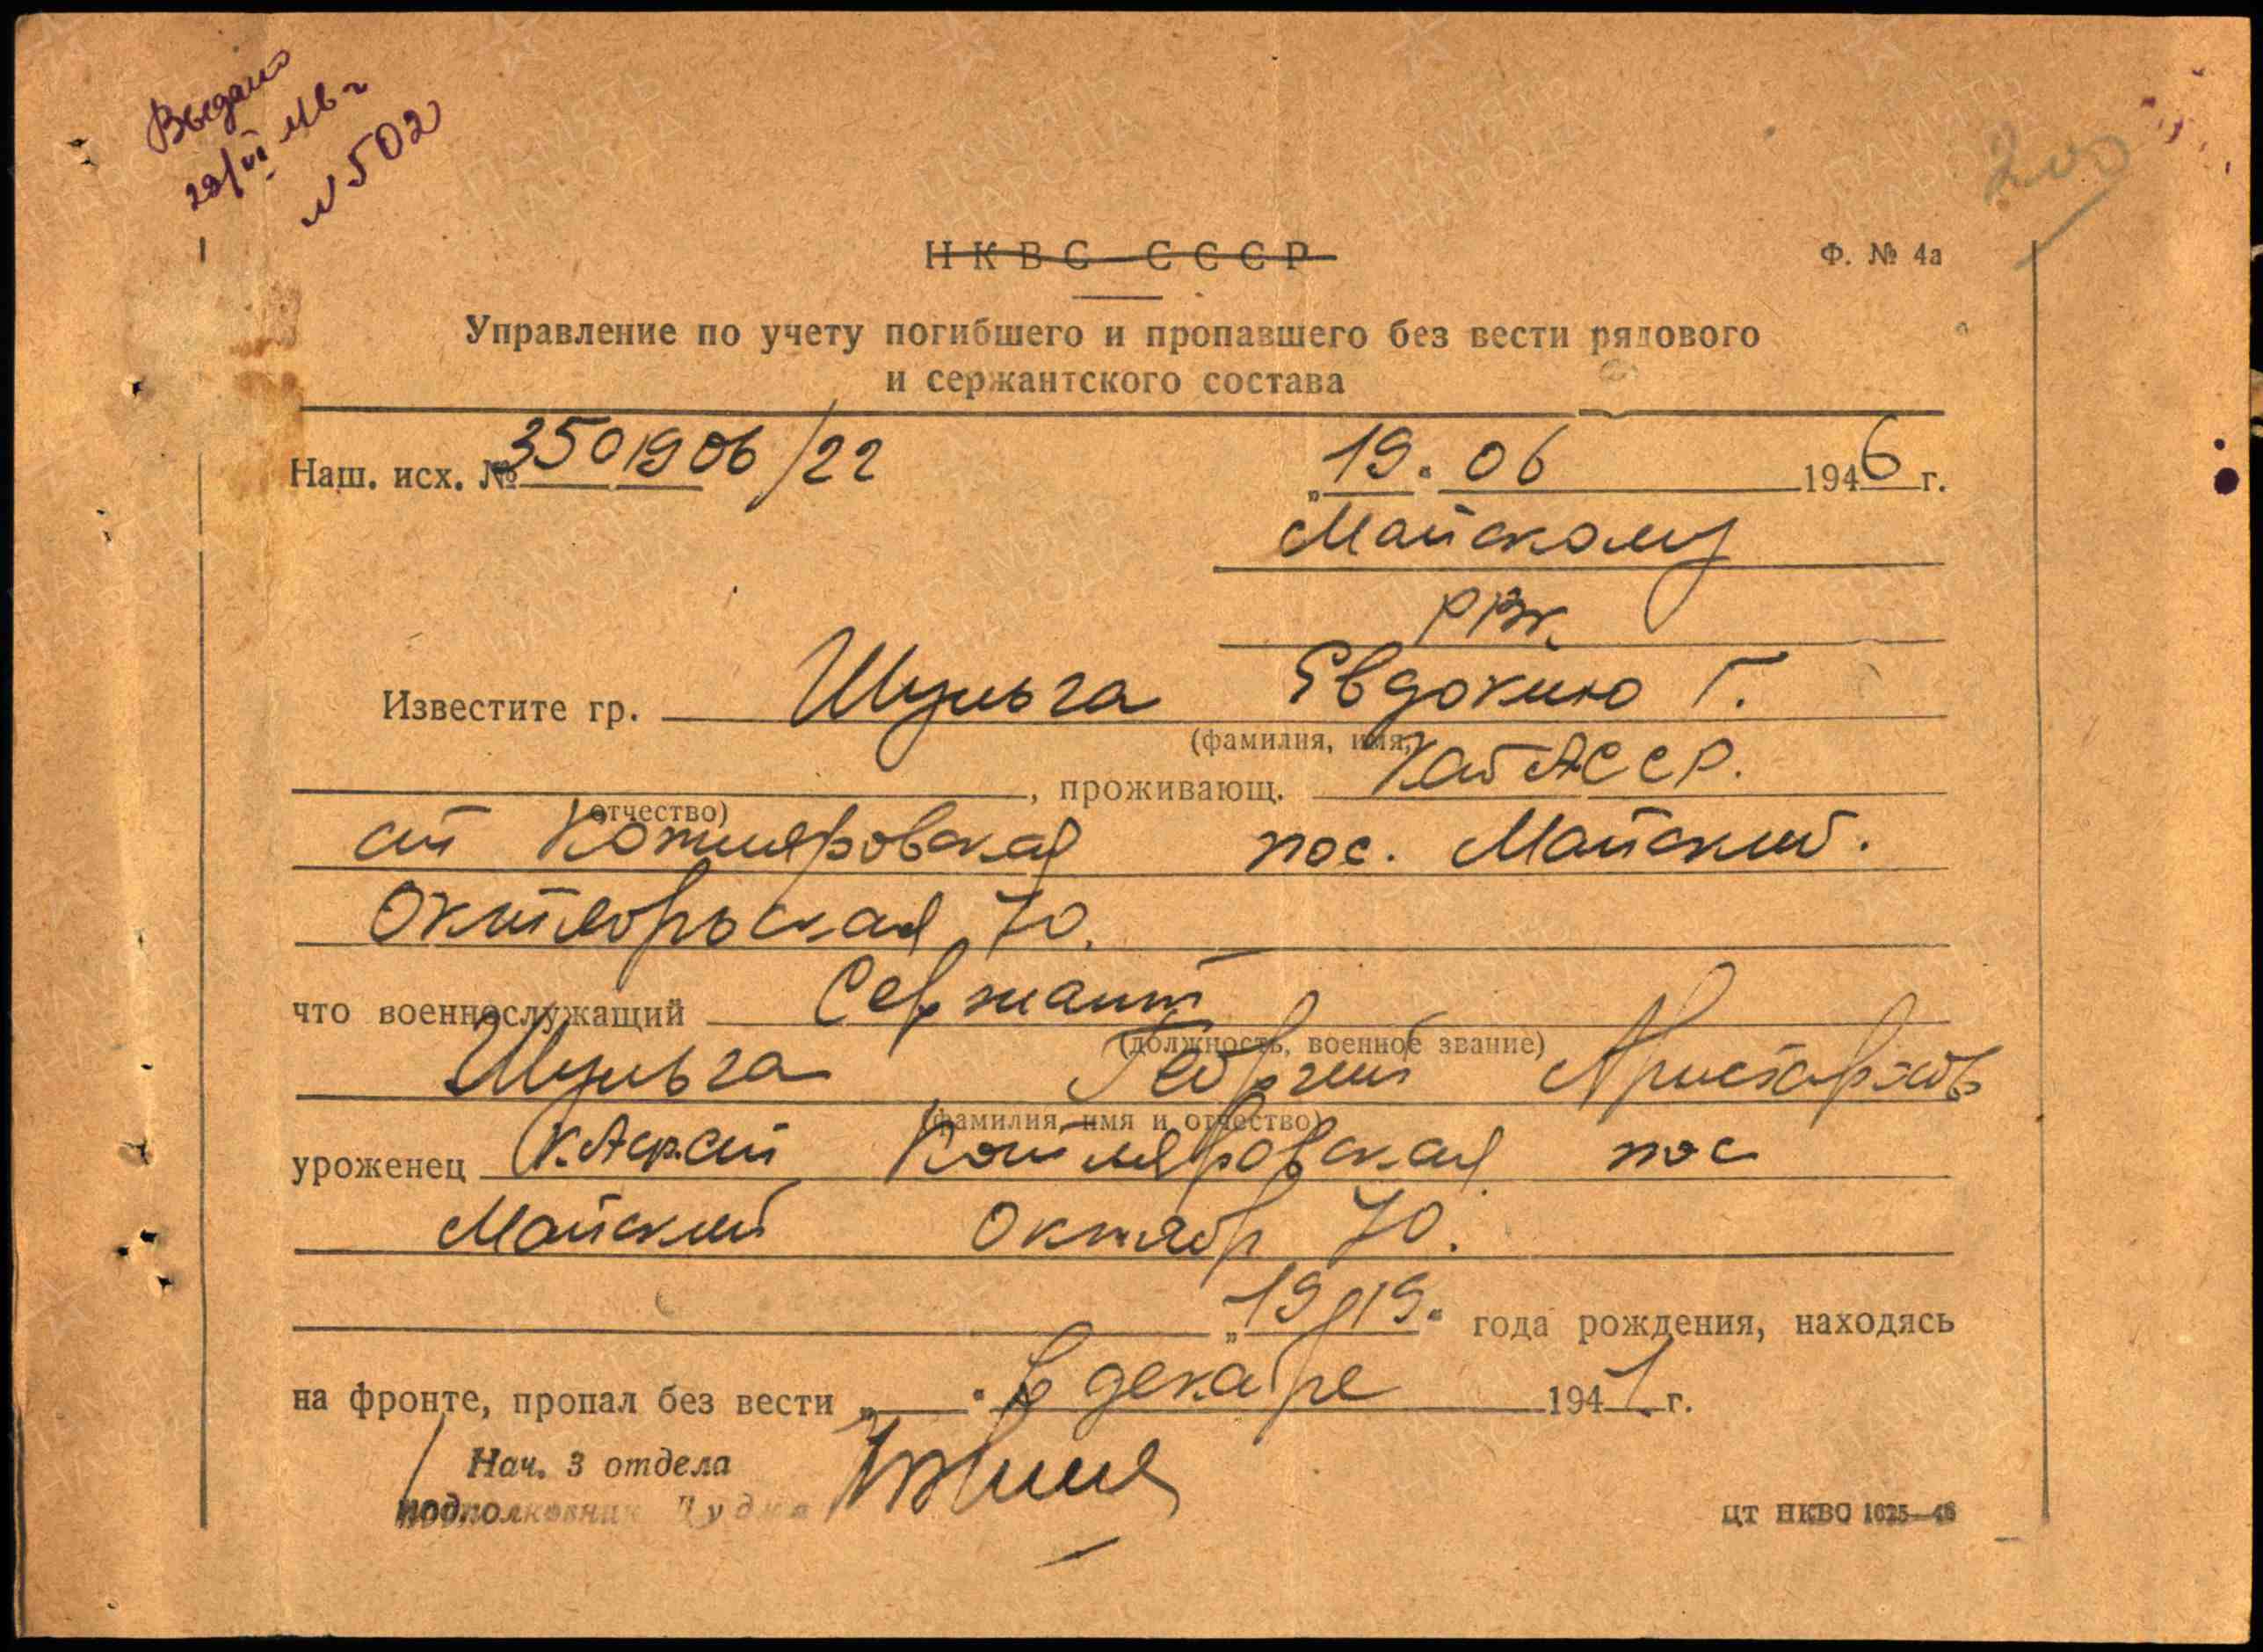 Выдано
29/VI 46 г
N 502
200
НКВС СССР
Ф. № 4а
Управление по учету погибшего и пропавшего без вести рядового
и сержантского состава
Наш. исх. № 3501906/22 „19" 06 1946 г.
Майскому
РВК
Известите гр. Шульга Евдокию Г.
(фамилия, имя,
, проживающ. КабАССР.
отчество)
ст Котляровская пос. Майский.
Октябрьская 70.
что военнослужащий Сержант
(должность, военное звание)
Шульга Георгий Аристархов
(фамилия, имя и отчество)
уроженец ст Котляровская пос
Майский Октябр 70.
„1919" года рождения, находясь
на фронте, пропал без вести „ " в декабре 1941 г.
Нач. 3 отдела
подполковник
ЦТ НКВО 1625—46
ПАМЯТЬ НАРОДА